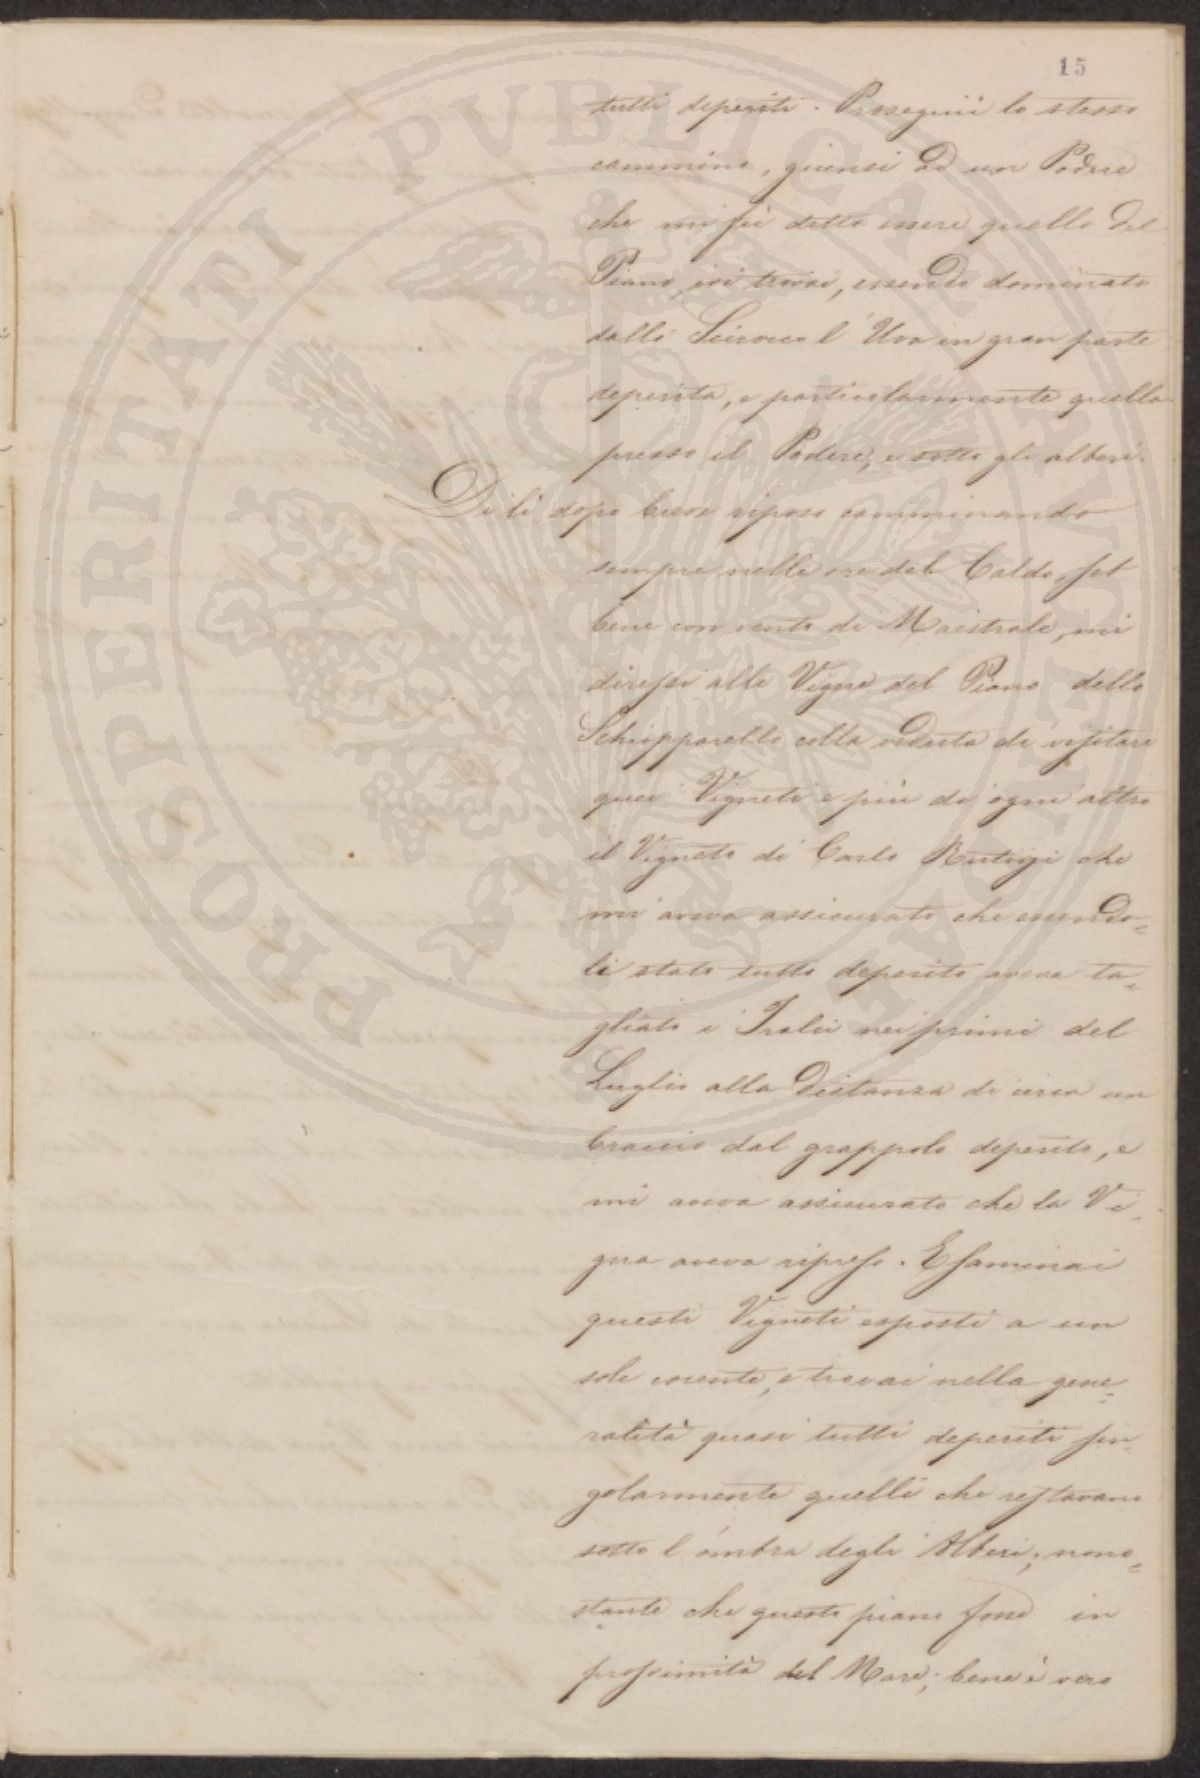 15
tutti deperiti. Proseguii lo stesso
cammino, giunsi ad un Podere
che mi fù detto essere quello del
Piano, ivi trovai, essendo dominato
dallo Scirocco l'Uva in gran parte
deperita, e particolarmente quella
presso il Podere, e sotto gli alberi.
Di lì dopo breve riposo camminando
sempre nelle ore del Caldo, seb
bene con vento di Maestrale, mi
diressi alle Vigne del Piano dello
Schiopparello colla veduta di visitare
quei Vigneti e più di ogni altro
il Vigneto di Carlo che
mi aveva assicurato che essendo=
li stato tutto deperito aveva ta=
gliato i Tralci nei primi del
Luglio alla distanza di circa un
braccio dal grappolo deperito, e
mi aveva assicurato che la Vi=
gna aveva ripreso. Esaminai
questi Vigneti esposti a un
sole cocente, e trovai nella gene=
ralità quasi tutti deperiti sin=
golarmente quelli che restavano
sotto l'ombra degli Alberi; nono=
stante che questo piano fosse in
prossimità del Mare; bene è vero
PROSPERITATI PVBLICAE